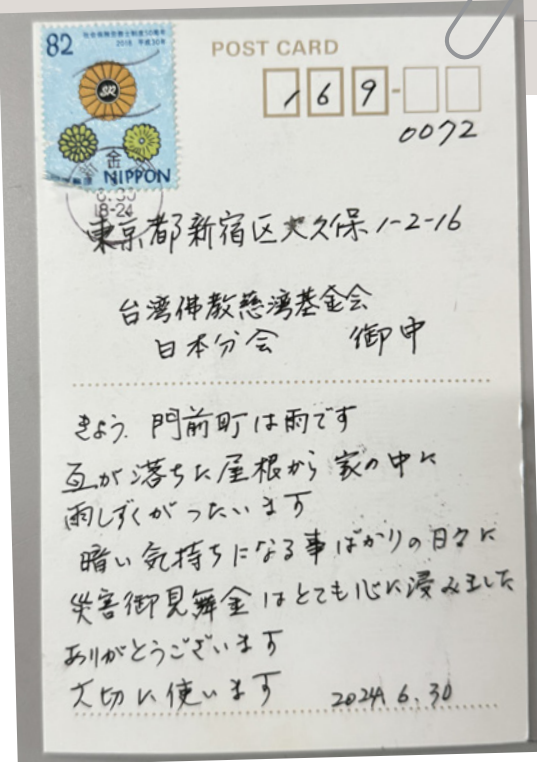 82
社会保険労務士制度50周年
2018 平成30年
SR
NIPPON
POST CARD
169-
0072
金
18-24
東京都新宿区大久保1-2-16
台湾佛教慈湾基金会
日本分会 御中
きょう、門前町は雨です
瓦が落ちた屋根から 家の中に
雨しずくがつたいます
暗い気持ちになる事ばかりの日々に
災害御見舞金はとても心に浸みました
ありがとうございます
大切に使います 2024.6.30